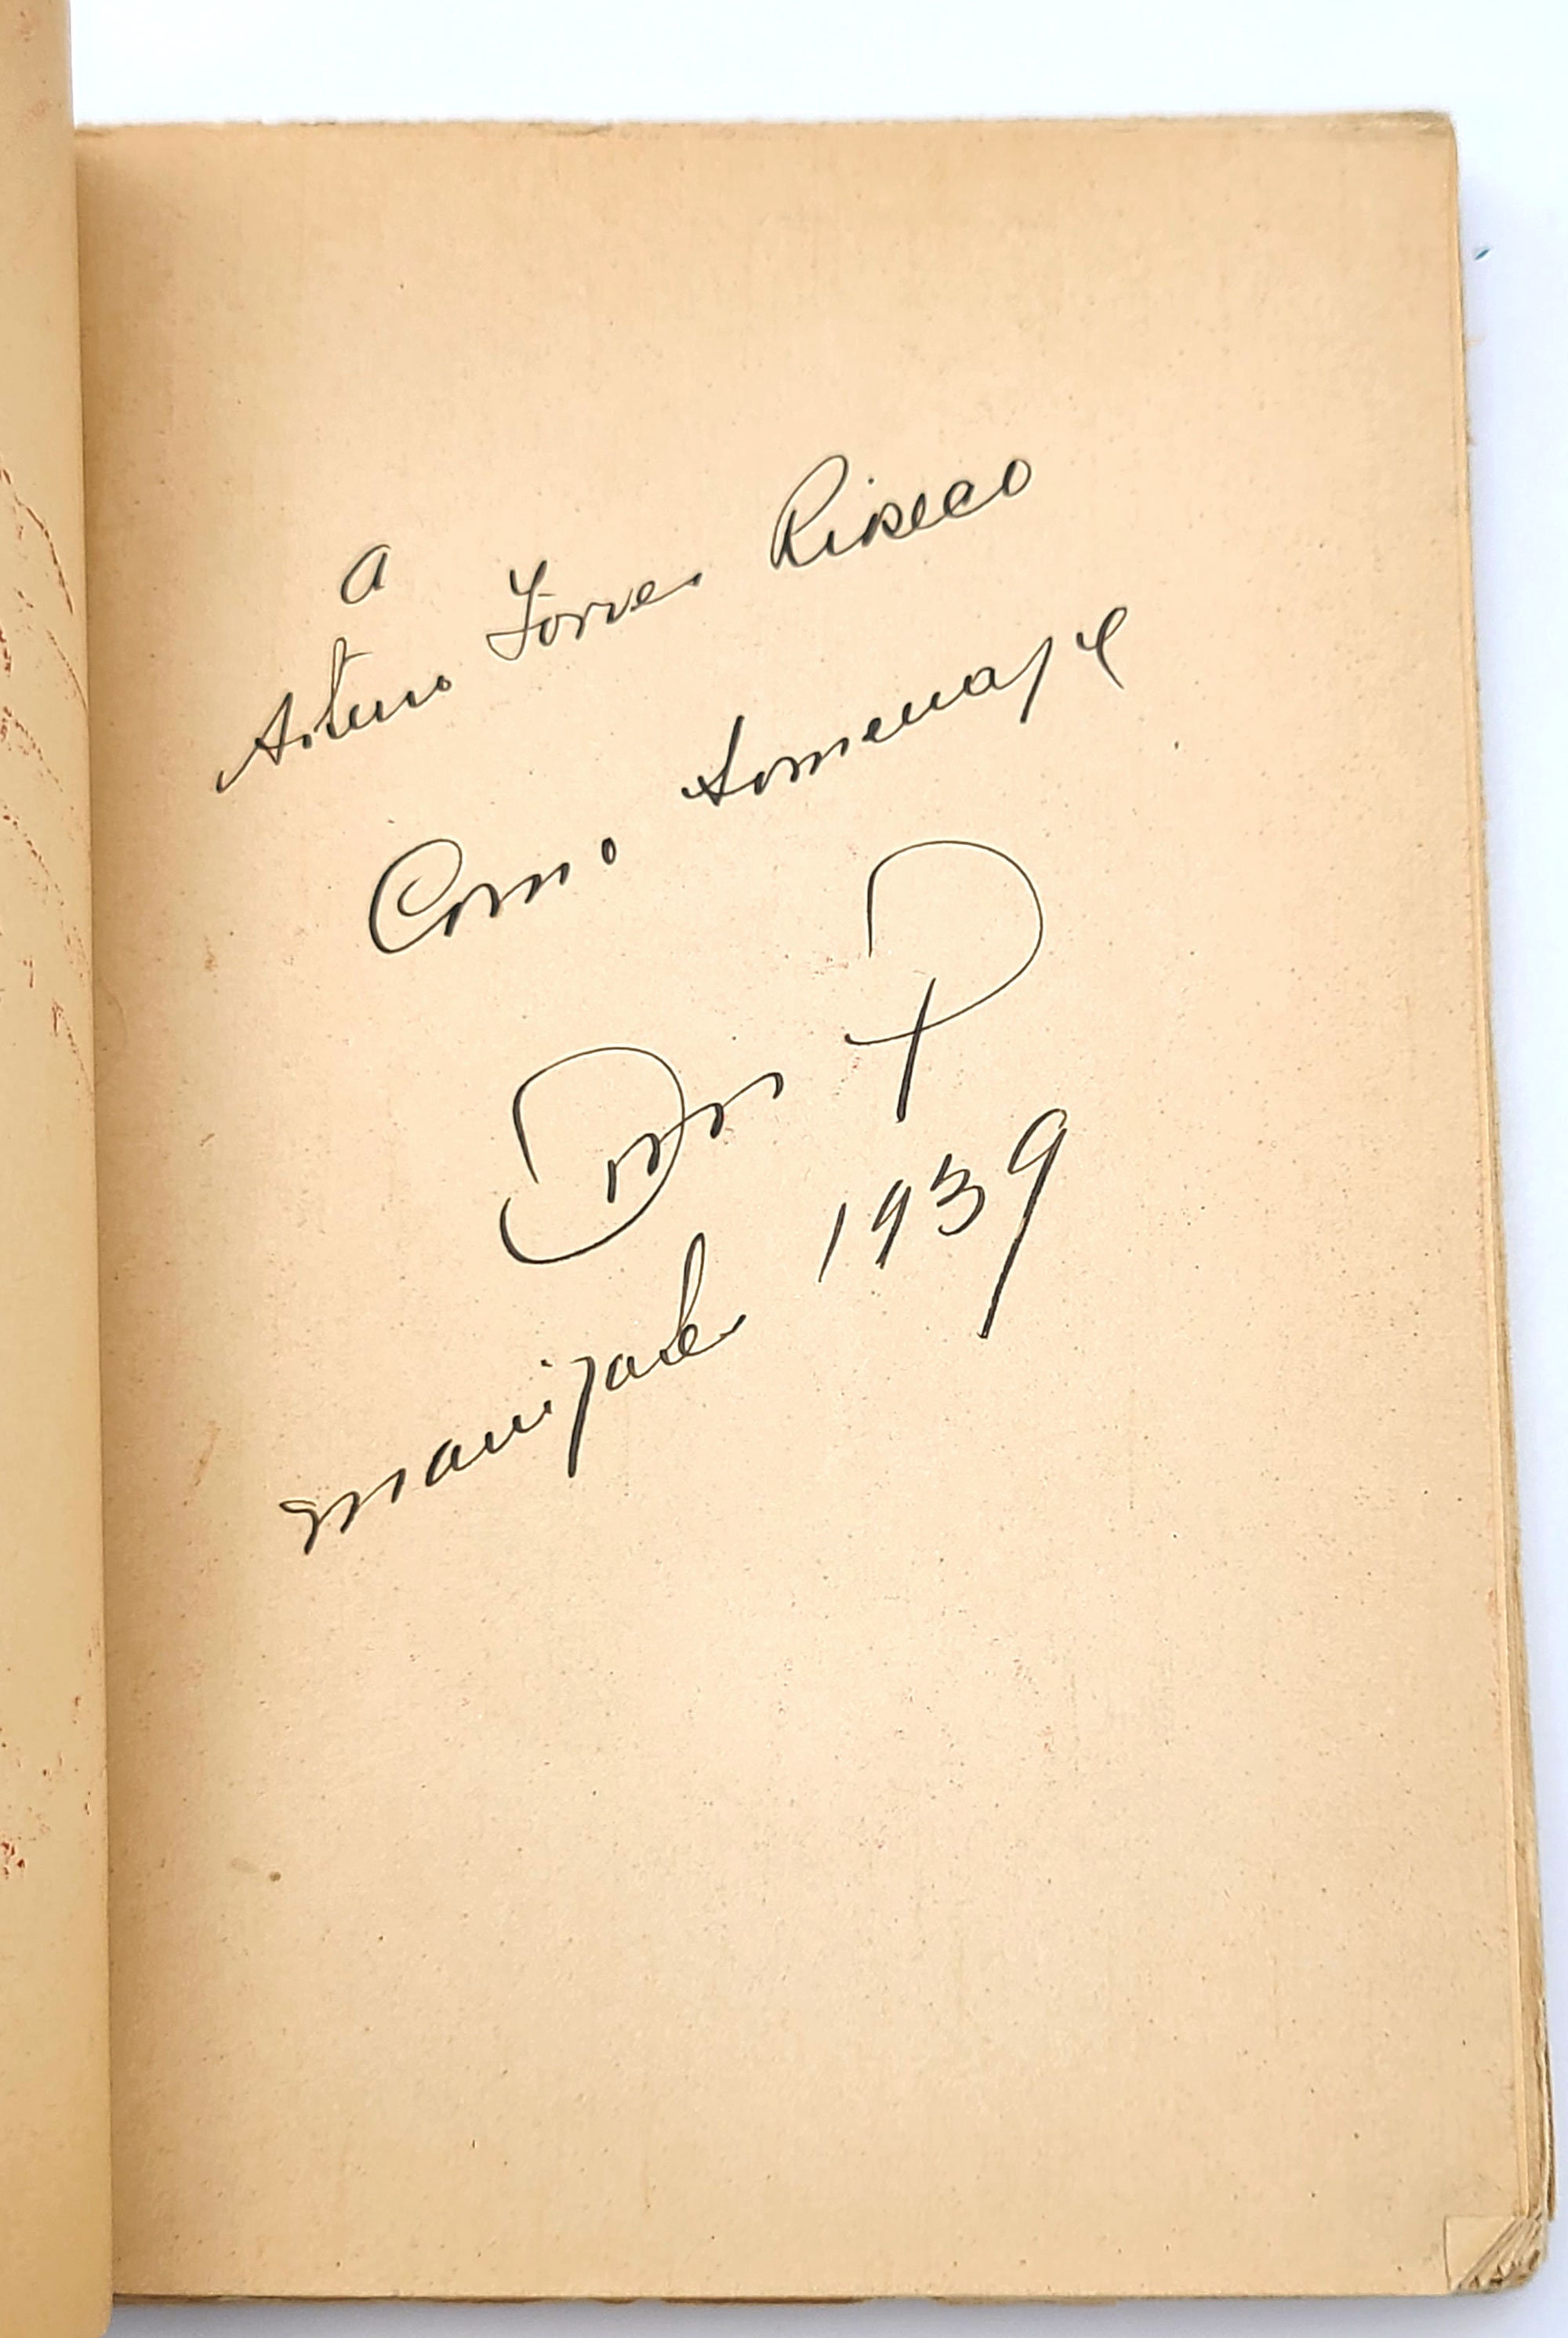 a
Arturo Torres Rioseco
Como homenaje
Manizales 1939